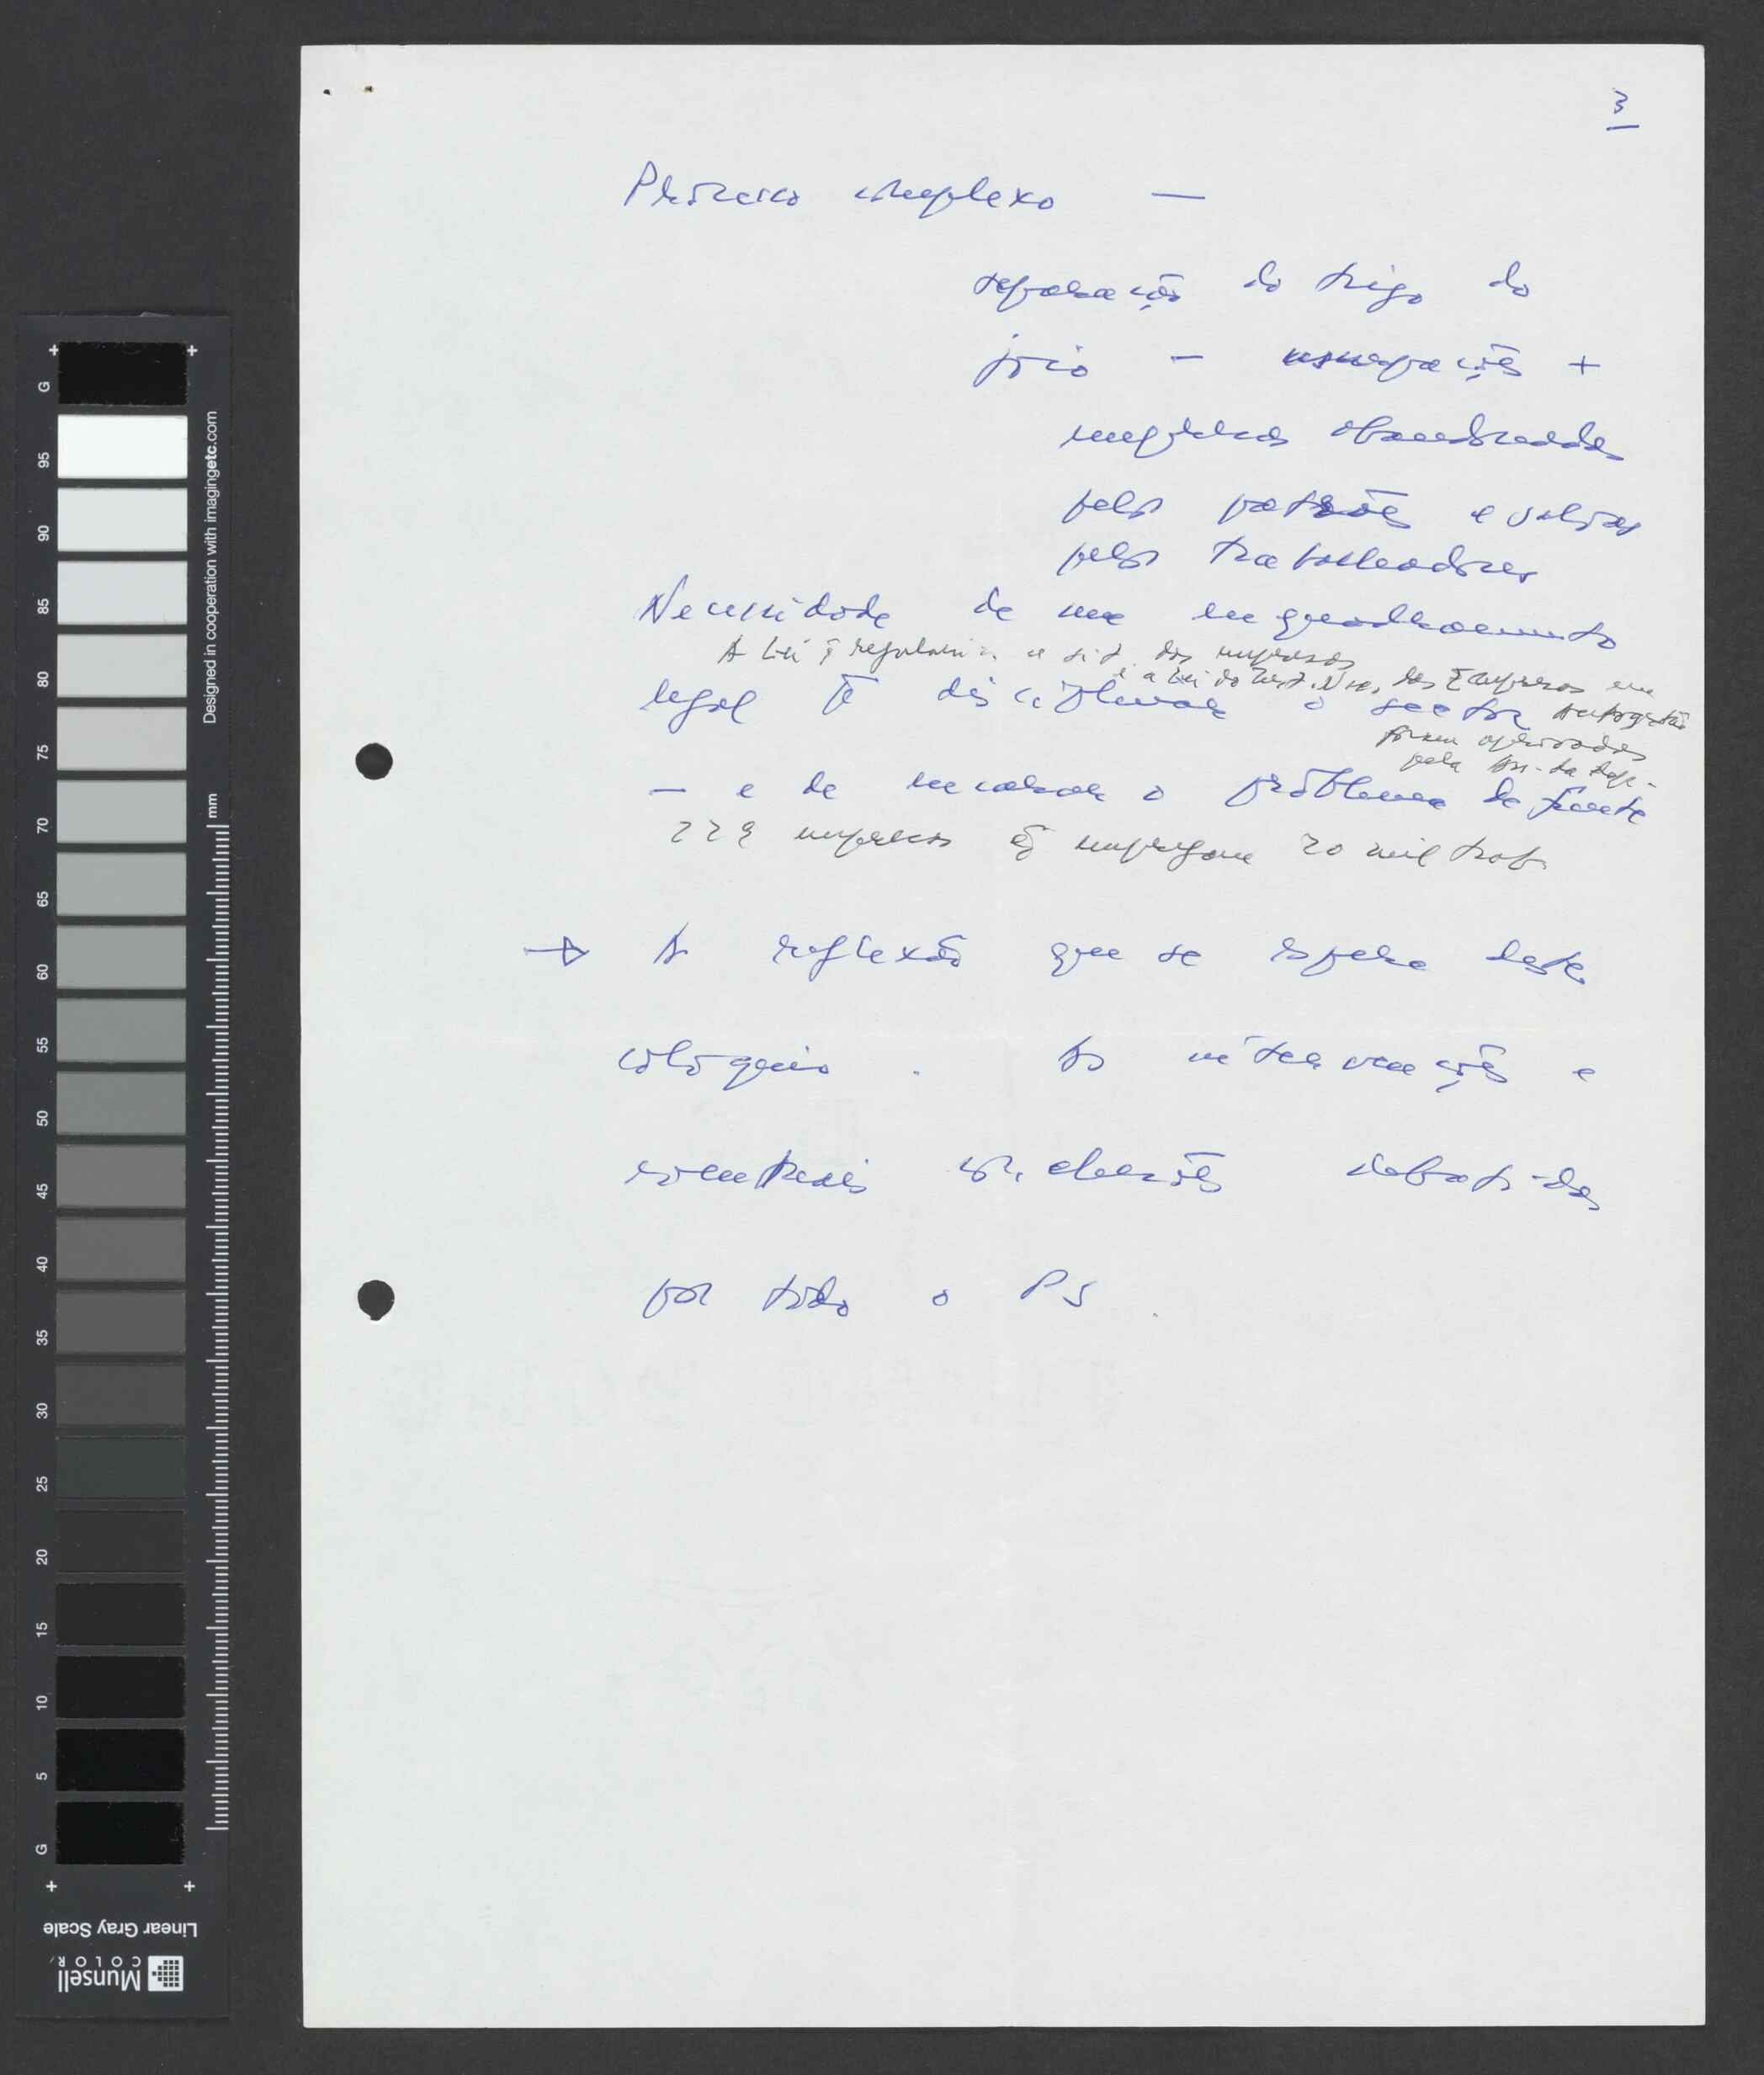 3
Processo complexo —
separação do trigo do
joio — usurpações +
empresas abandonadas
pelos patrões e salvas
pelos trabalhadores
Necessidade de um enquadramento
A Lei q regulariza a sit. das empresas
e a Lei do Inst. Nac. das Empresas em
legal p disciplinar o sector autogestão
foram aprovadas
pela Ass. da Rep.
— e de encarar o problema de frente
229 empresas q empregam 20 mil trab.
→ A reflexão que se espera deste
colóquio . As intervenções e
eventuais conclusões debatidas
por todo o PS .
G
95
90
85
80
75
70
65
60
55
50
45
40
35
30
25
20
15
10
5
G
mm
Designed in cooperation with imagingetc.com
Linear Gray Scale
Munsell
COLOR